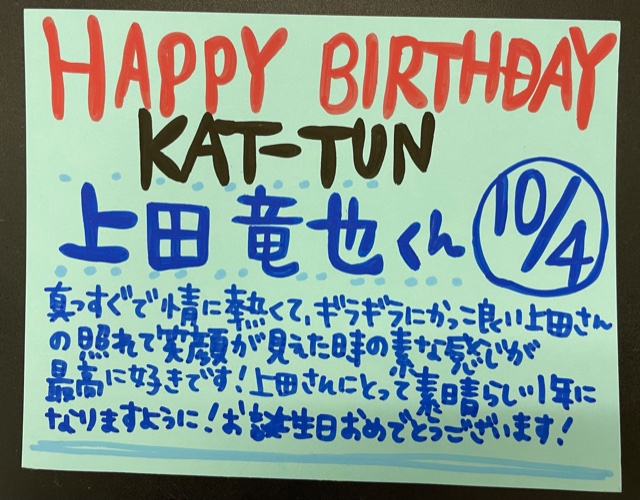 HAPPY BIRTHDAY
KAT-TUN
上田竜也くん 10/4
真っすぐで情に熱くて、ギラギラにかっこ良い上田さん
の照れて笑顔が見えた時の素な感じが
最高に好きです!上田さんにとって素晴らしい1年に
なりますように!お誕生日おめでとうございます!